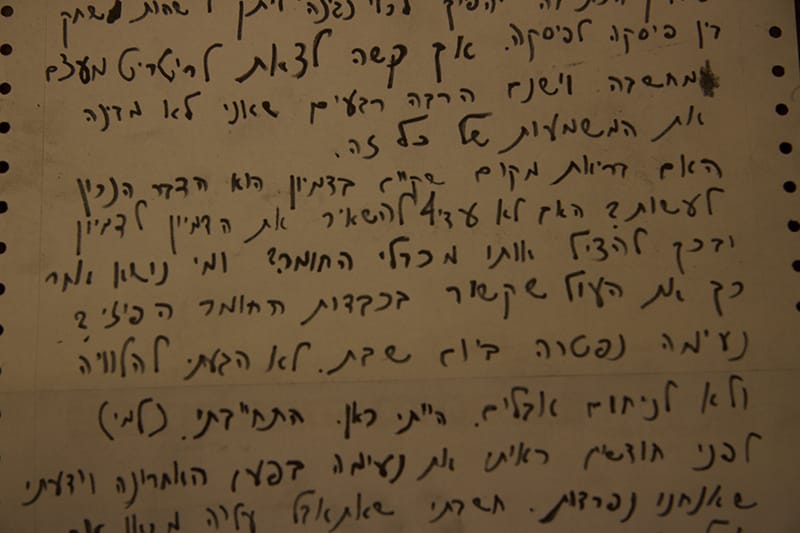 דין פיסקה לפיסקה. אך קשה לצאת לריטריט מעצם
מחשבה וישנם הרבה רבעים שאני לא מבינה
את המשמעות של כל זה.
האם בריאת מקום שקיים בדמיון הוא הדבר הנכון
לעשות? האם לא עדיף להשאיר את הדמיון לדמיון
ובכך להציל אותו מכבלי החומר? ומי נישא אחר
כך את העול שקשור בכבדות החומר הפיזי?
נעימה נפטרה ביום שבת. לא הגעתי להלוויה
ולא לניחום אבלים. הייתי כאן. התחייבתי. (למי)
לפני חודשיים ראיתי את נעימה בפעם האחרונה וידעתי
שאנחנו נפרדות. חשבתי שאתאבל עליה